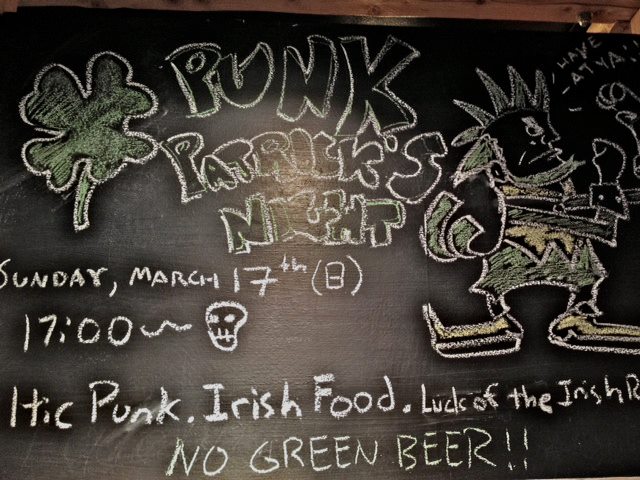 PUNK
PATRICK'S
NIGHT
HAVE
AT YA!!
SUNDAY, MARCH 17th (日)
17:00~
ltic Punk. Irish Food. Luck of the Irish R
NO GREEN BEER!!